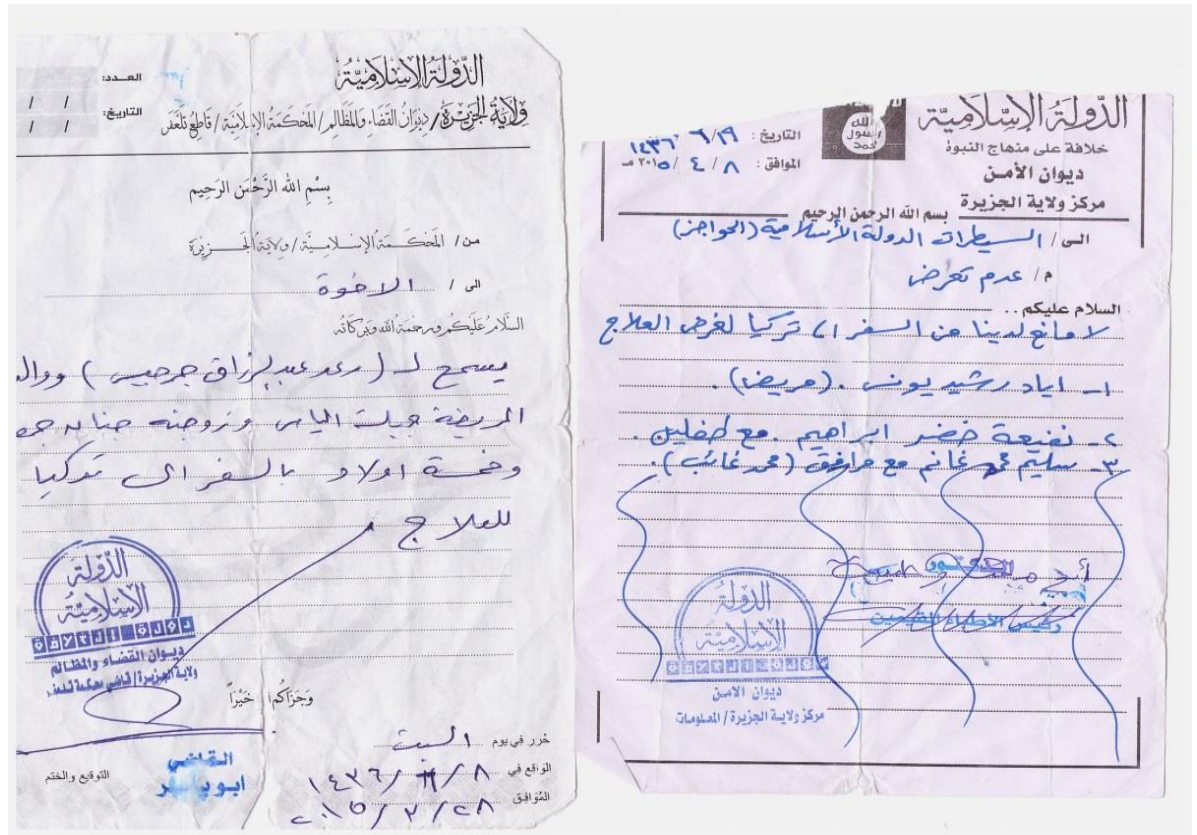 الدولة الإسلامية
ولاية الجزيرة / ديوان القضاء والمظالم / المحكمة الإسلامية / قاطع تلعفر
العدد:
التاريخ: / /
/ /
بسم الله الرحمن الرحيم
من / المحكمة الإسلامية / ولاية الجزيرة
الى / الاخوة
السلام عليكم ورحمة الله وبركاته
يسمح لـ ( رعد عبد الرزاق جرجيس ) ووالد
المريضة الياس وزوجته
وخمسة اولاد بالسفر الى تركيا
للعلاج
الدولة
الإسلامية
ديوان القضاء والمظالم
ولاية الجزيرة / قاضي محكمة تلعفر
وجزاكم خيراً
القاضي
ابو
التوقيع والختم
حرر في يوم السبت
الواقع في ٨ / / ١٤٣٦
الموافق ٢٨ / ٢ / ٢٠١٥
الدولة الإسلامية
خلافة على منهاج النبوة
ديوان الأمن
مركز ولاية الجزيرة
الله
رسول
محمد
التاريخ : ١٩ / ٦ / ١٤٣٦
الموافق : ٨ / ٤ / ٢٠١٥ مـ
بسم الله الرحمن الرحيم
الى / السيطرات الدولة الأسلامية (الحواجز)
م / عدم تعرض
السلام عليكم ..
لا مانع لدينا من السفر الى تركيا لغرض العلاج
١- اياد رشيد يونس . (مريض) .
٢- نفيعة خضر ابراهيم . مع طفلين .
٣- سليم محمد غانم مع مرافق (محمد غائب) .
الدولة
الإسلامية
ديوان الامن
مركز ولاية الجزيرة / المعلومات